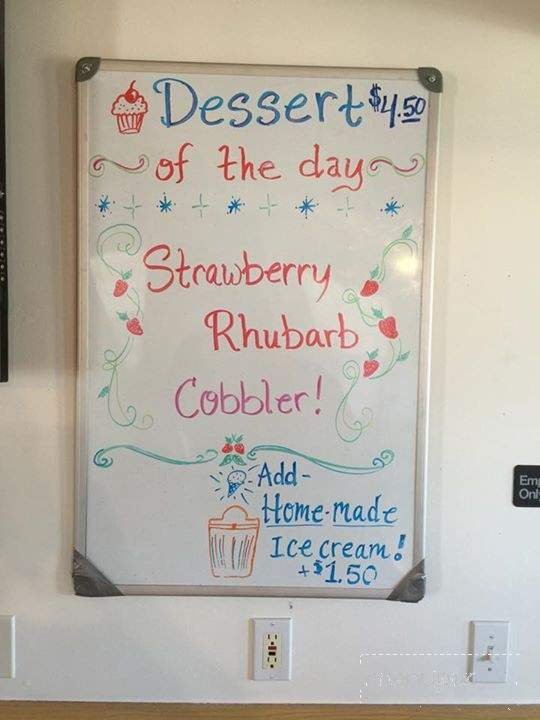 Dessert $4.50
of the day
Strawberry
Rhubarb
Cobbler!
Add-
Home-made
Ice cream!
+$1.50